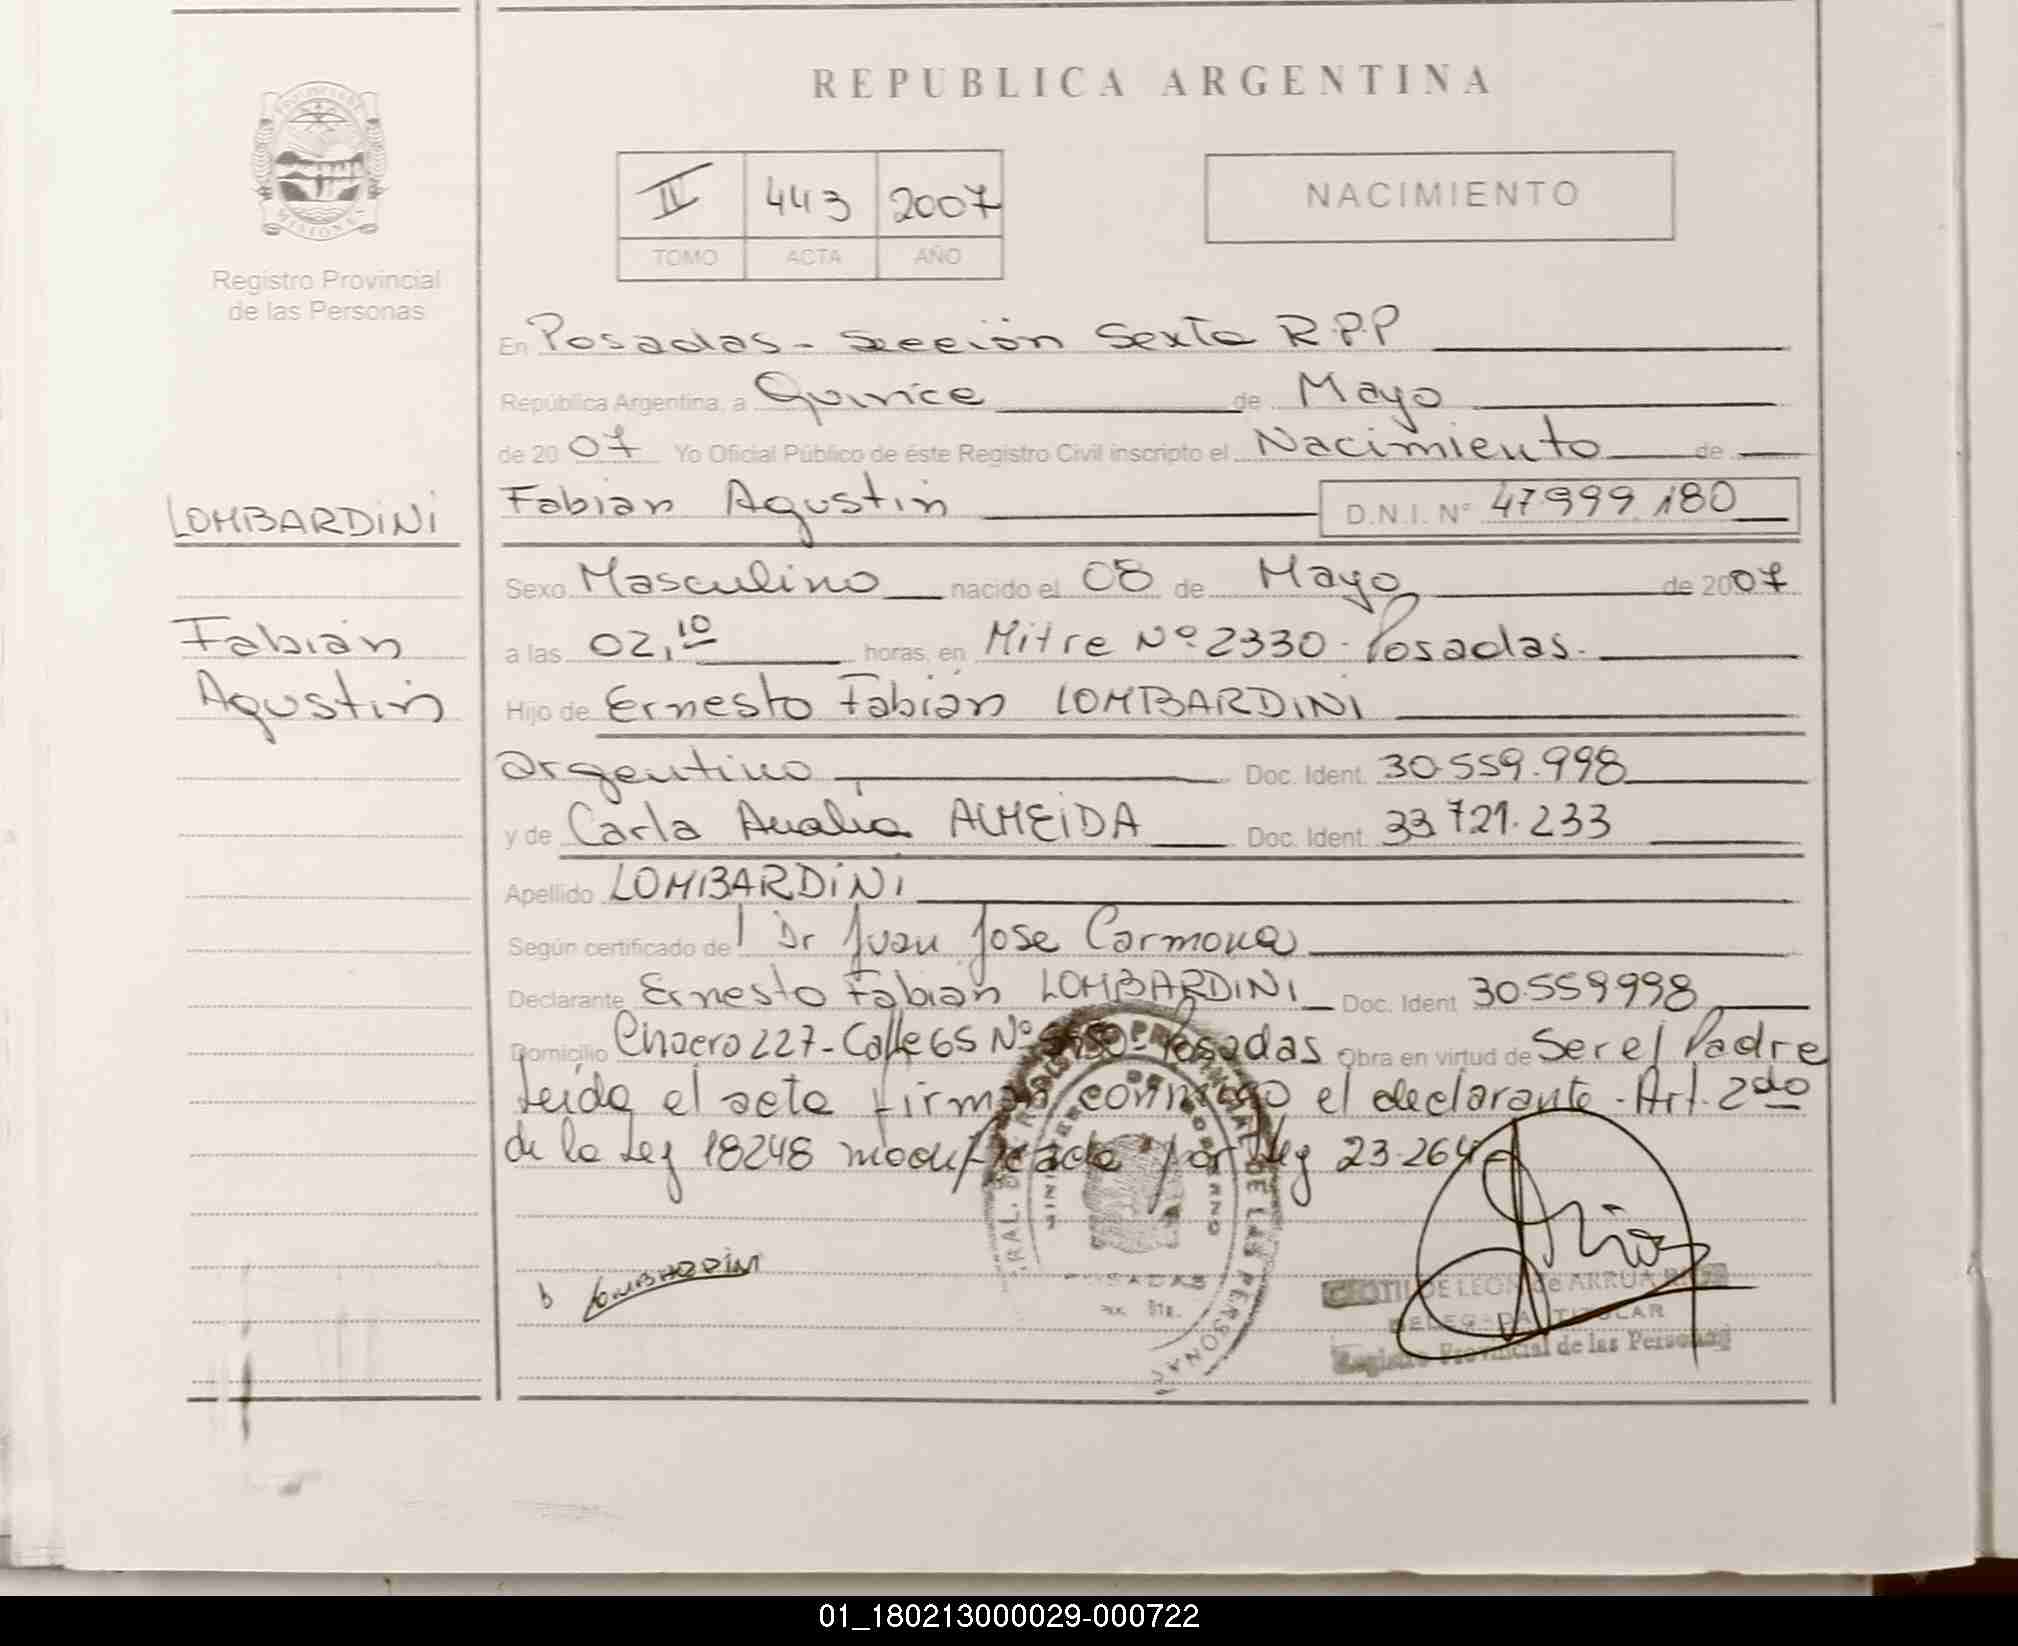 REPUBLICA ARGENTINA
MISIONES
Registro Provincial
de las Personas
IV 443 2007
TOMO ACTA AÑO
NACIMIENTO
En Posadas - sección Sexta R.P.P
República Argentina, a Quince de Mayo
de 2007 Yo Oficial Público de éste Registro Civil inscripto el Nacimiento de
LOMBARDINI
Fabián Agustín D.N.I. Nº 47999180
Sexo Masculino nacido el 08 de Mayo de 2007
Fabián
a las 02,10 horas, en Mitre Nº 2330 - Posadas.
Agustín
Hijo de Ernesto Fabián LOMBARDINI
argentino, Doc. Ident. 30.559.998
y de Carla Analia ALMEIDA Doc. Ident. 33.721.233
Apellido LOMBARDINI
Según certificado del Dr Juan Jose Carmona
Declarante Ernesto Fabián LOMBARDINI Doc. Ident 30.559998
Domicilio Chacra 227 - Calle 65 Nº Posadas Obra en virtud de Ser el Padre
Leída el acta firma conmigo el declarante - Art. 2do
de la Ley 18248 modificada por Ley 23.264
LOMBARDINI
DE LEON de ARRUA
DELEGADA TITULAR
Registro Provincial de las Personas
MINISTERIO DE GOBIERNO
DE LAS PERSONAS
POSADAS
01_180213000029-000722